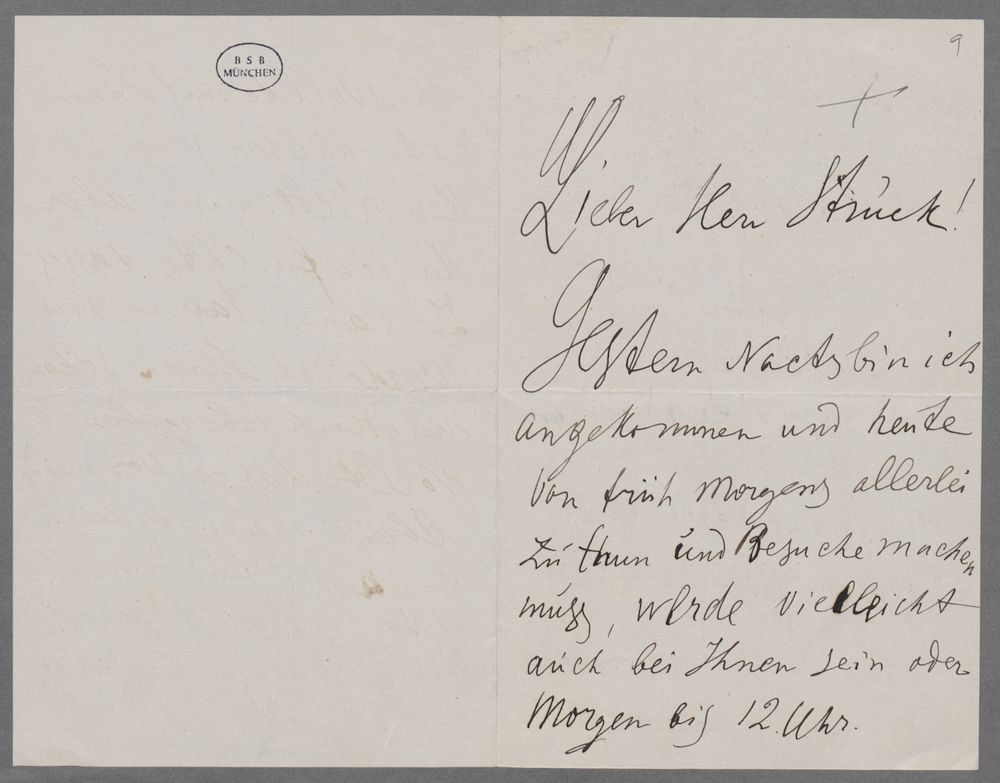 BSB
MÜNCHEN
9
Lieber Herr Struck!
Gestern Nachts bin ich
angekommen und heute
von früh Morgens allerlei
zu thun und Besuche machen
muss, werde vielleicht
auch bei Ihnen sein oder
Morgen bis 12. Uhr.